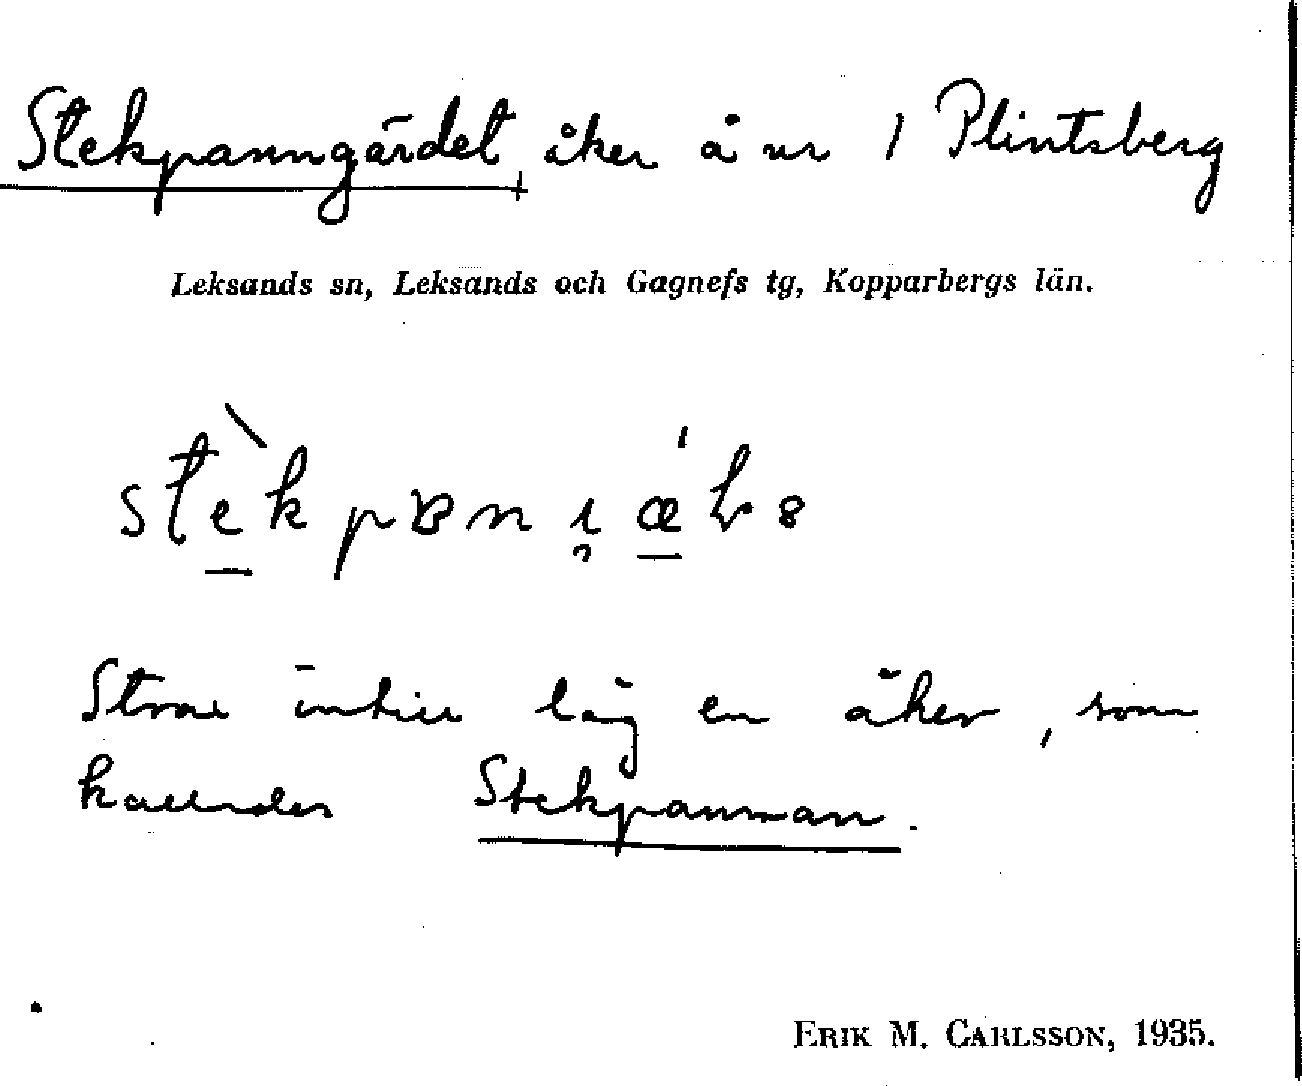 Stekpanngärdet åker å nr 1 Plintsberg
Leksands sn, Leksands och Gagnefs tg, Kopparbergs län.
Strax intill låg en åker, som
kallades Stekpannan.
ERIK M. CARLSSON, 1935.